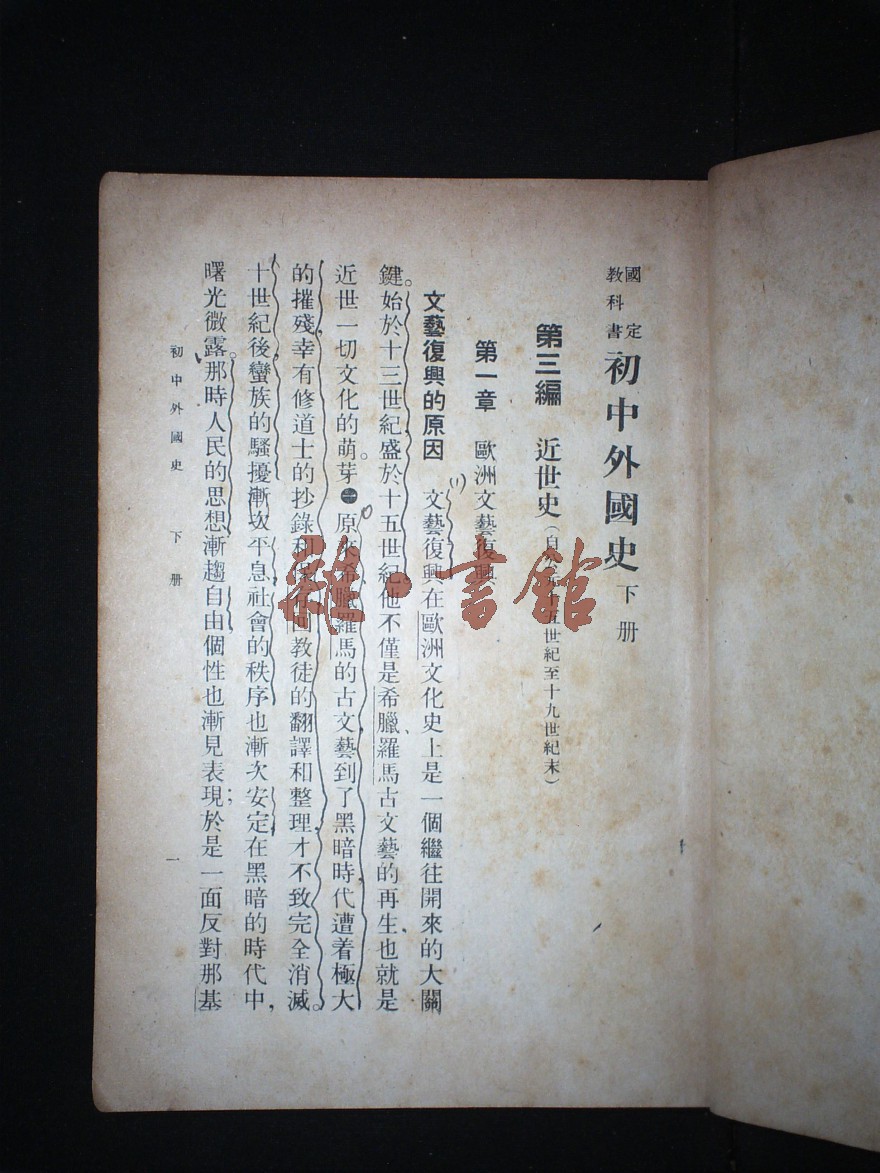 國定教科書 初中外國史 下册
第三編 近世史（自公元十五世紀至十九世紀末）
第一章 歐洲文藝復興
文藝復興的原因 文藝復興在歐洲文化史上是一個繼往開來的大關
鍵。始於十三世紀盛於十五世紀。他不僅是希臘、羅馬古文藝的再生、也就是
近世一切文化的萌芽。原來希臘羅馬的古文藝到了黑暗時代遭着極大
的摧殘幸有修道士的抄錄和保存回教徒的翻譯和整理才不致完全消滅。
十世紀後蠻族的騷擾漸次平息社會的秩序也漸次安定在黑暗的時代中，
曙光微露。那時人民的思想漸趨自由個性也漸見表現；於是一面反對那基
初中外國史 下册
一
雜·書館
(1)